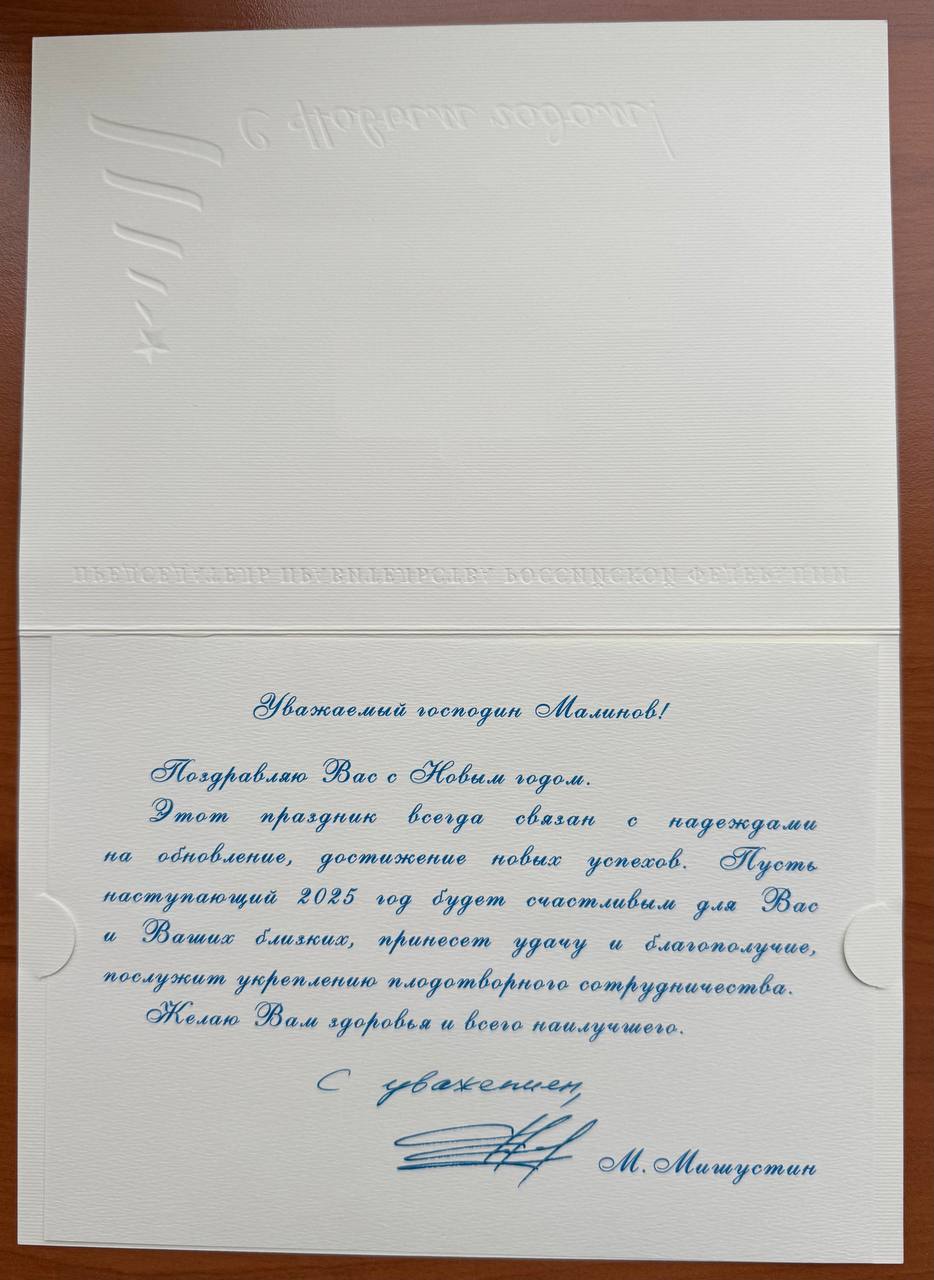 С Новым годом!
ПРЕДСЕДАТЕЛЬ ПРАВИТЕЛЬСТВА РОССИЙСКОЙ ФЕДЕРАЦИИ
Уважаемый господин Малинов!
Поздравляю Вас с Новым годом.
Этот праздник всегда связан с надеждами
на обновление, достижение новых успехов. Пусть
наступающий 2025 год будет счастливым для Вас
и Ваших близких, принесет удачу и благополучие,
послужит укреплению плодотворного сотрудничества.
Желаю Вам здоровья и всего наилучшего.
С уважением,
М. Мишустин